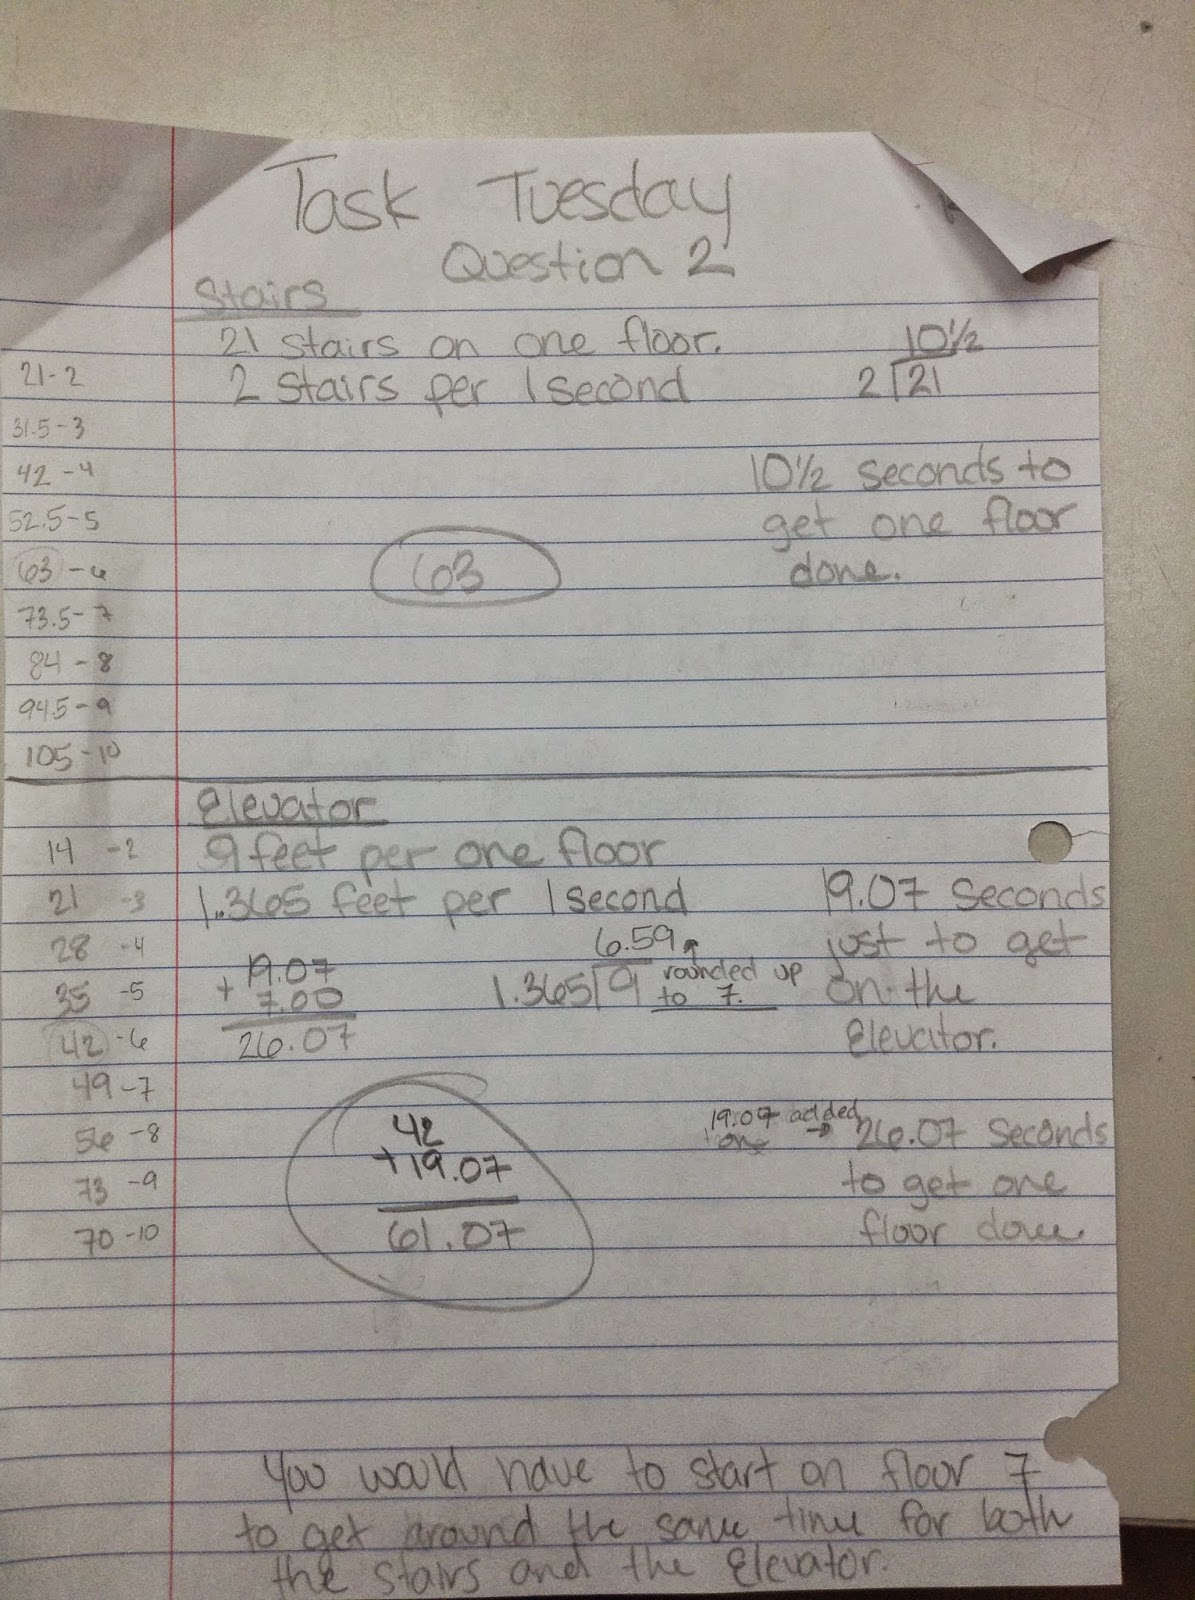 Task Tuesday
Question 2
Stairs
21 stairs on one floor.
2 stairs per 1 second
10½
2√21
10½ seconds to
get one floor
done.
63
21-2
31.5-3
42-4
52.5-5
63-6
73.5-7
84-8
94.5-9
105-10
Elevator
9 feet per one floor
1.365 feet per 1 second
19.07
+ 7.00
26.07
6.59
1.365√9
rounded up
to 7.
19.07 seconds
just to get
on the
Elevator.
42
+19.07
61.07
19.07 added
→ 26.07 seconds
to get one
floor done.
14 -2
21 -3
28 -4
35 -5
42 -6
49 -7
56 -8
73 -9
70 -10
You would have to start on floor 7
to get around the same time for both
the stairs and the Elevator.